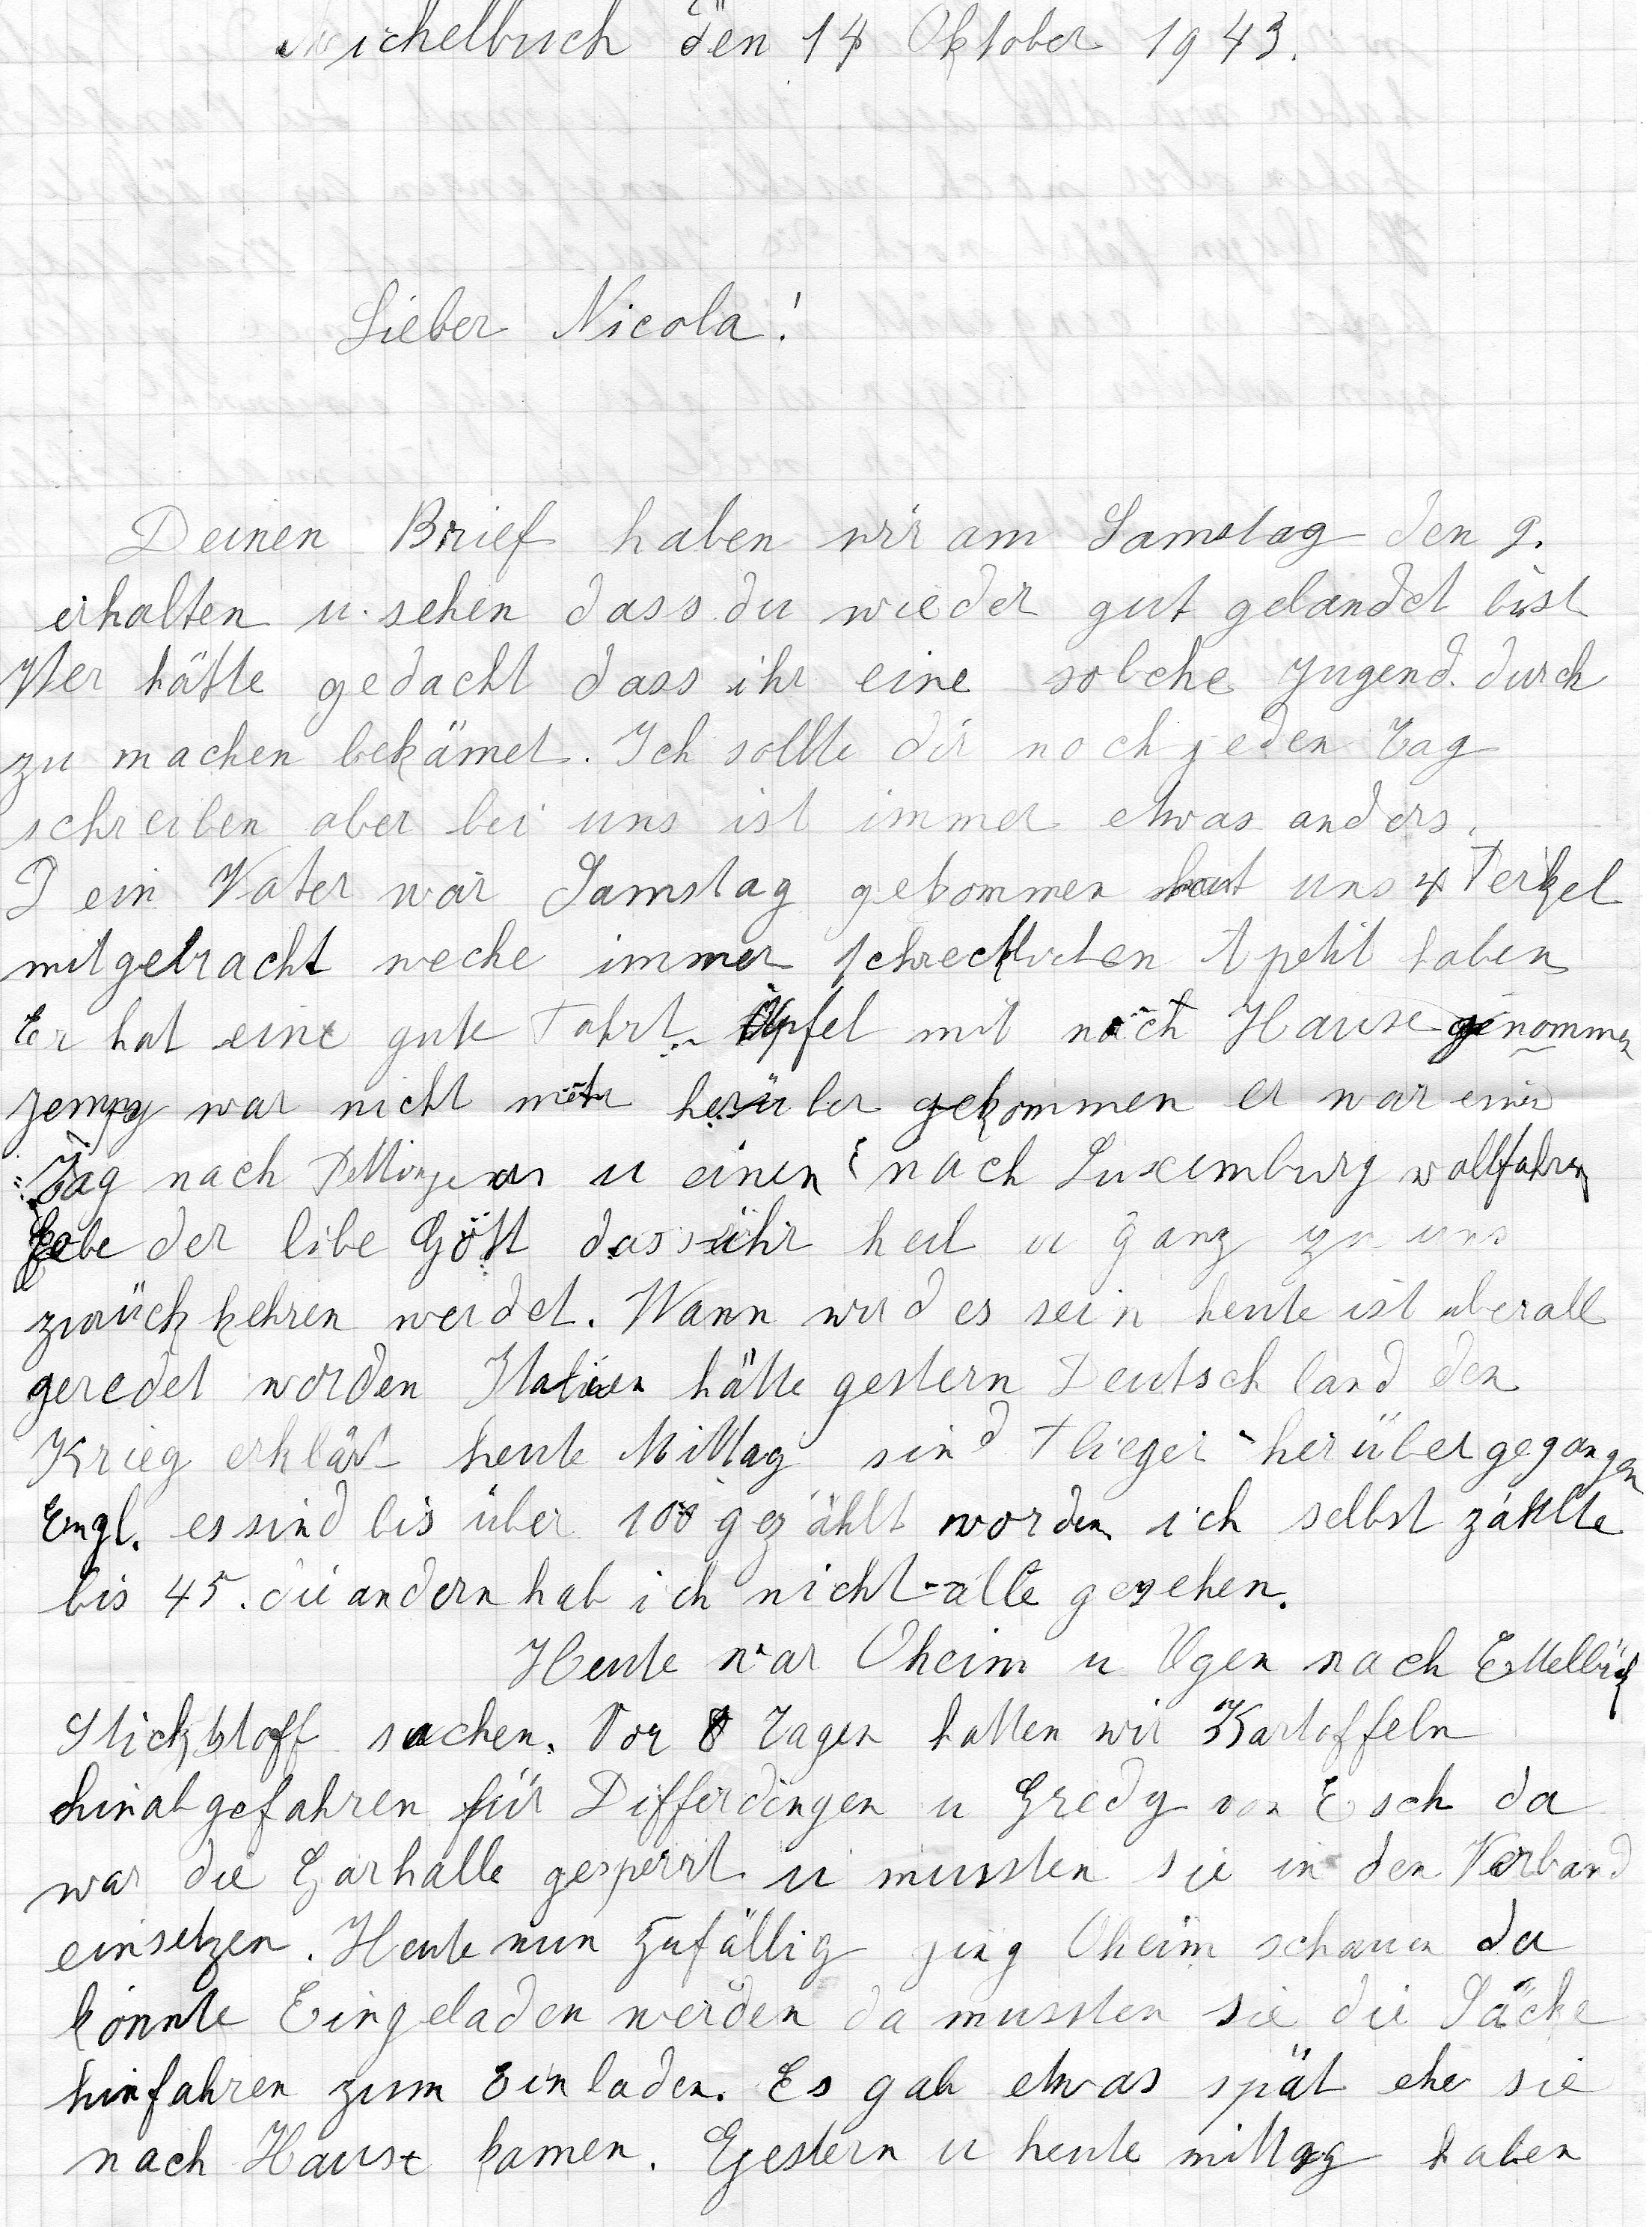 Michelbuch den 14 Oktober 1943.
Lieber Nicola!
Deinen Brief haben wir am Samstag den 9.
erhalten u. sehen dass du wieder gut gelandet bist
Wer hätte gedacht dass ihr eine solche Jugend durch
zu machen bekämet. Ich sollte dir noch jeden Tag
schreiben aber bei uns ist immer etwas anders.
Dein Vater war Samstag gekommen hat uns 4 Ferkel
mitgebracht weche immer schrecklichen Apetit haben
Er hat eine gute Fahrt Äpfel mit nach Hause genommen
Jempy war nicht mehr herüber gekommen er war einen
Tag nach u einen nach Luxemburg wallfahren
Gebe der libe Gott dass ihr heil u ganz zu uns
zurückkehren werdet. Wann wird es sein heute ist uberall
geredet worden Italien hätte gestern Deutschland den
Krieg erklärt heute Mittag sind Flieger herübergegangen
Engl. es sind bis über 100 gezählt worden ich selbst zählte
bis 45. die andern hab ich nicht alle gesehen.
Heute war Oheim u Ugen nach Ettelbrück
Stickstoff suchen. Vor 8 Tagen hatten wir Kartoffeln
hinabgefahren für Differdingen u Gredy von Esch da
war die Garhalle gesperrt u mussten sie in den Verband
einsetzen. Heute nun zufällig ging Oheim schauen da
konnte Eingeladen werden da mussten sie die Säcke
hinfahren zum Einladen. Es gab etwas spät ehe sie
nach Hause kamen. Gestern u heute mittag haben